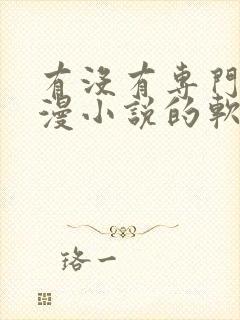 有沒有専門
漫小説的軟
珞一